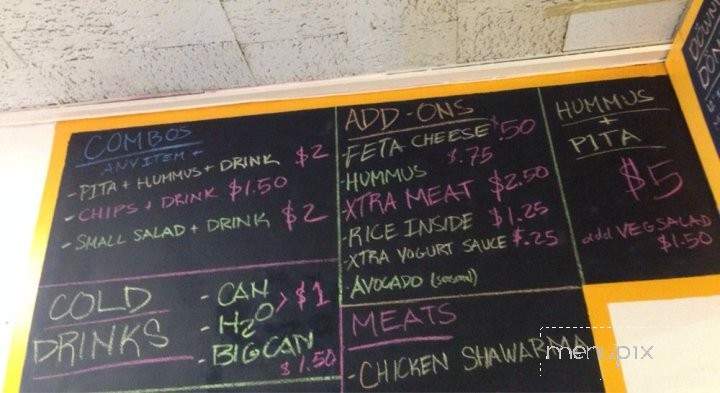 COMBOS
ANY ITEM +
- PITA + HUMMUS + DRINK $2
- CHIPS + DRINK $1.50
- SMALL SALAD + DRINK $2
COLD
DRINKS
- CAN
- H2O > $1
- BIG CAN
$1.50
ADD-ONS
-FETA CHEESE $.50
-HUMMUS $.75
-XTRA MEAT $2.50
-RICE INSIDE $1.25
-XTRA YOGURT SAUCE $.25
-AVOCADO (season)
MEATS
-CHICKEN SHAWARMA
HUMMUS
+
PITA
$5
add VEG SALAD
$1.50
menupix